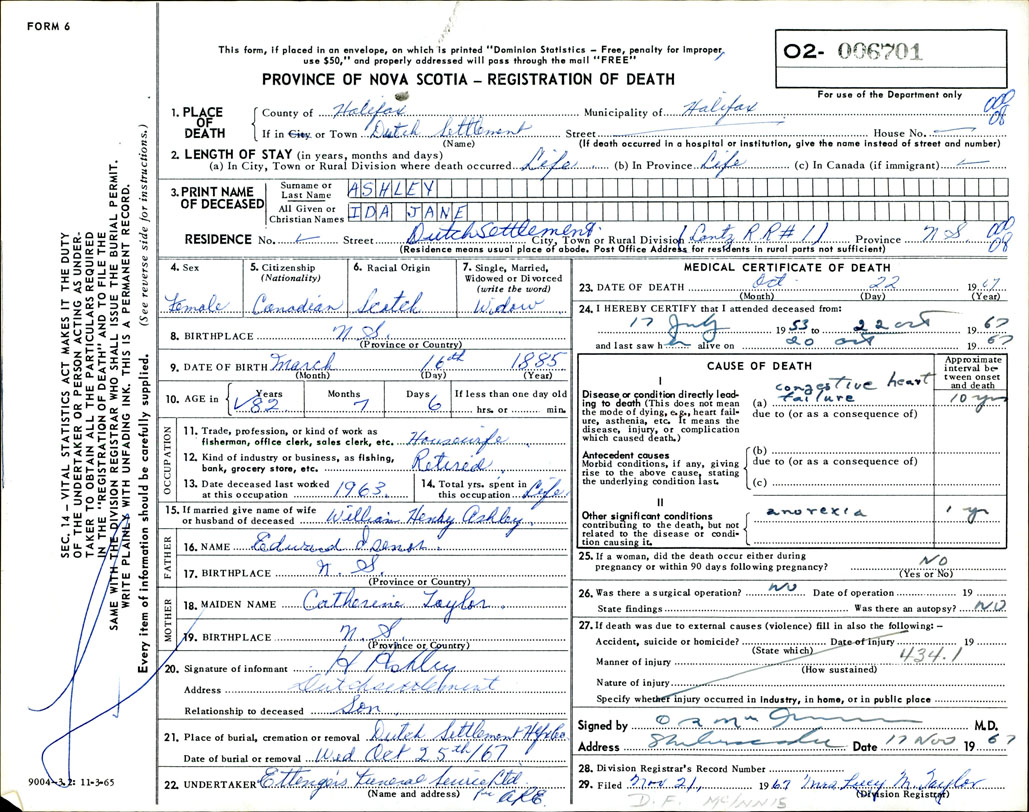 FORM 6
This form, if placed in an envelope, on which is printed "Dominion Statistics – Free, penalty for improper
use $50," and properly addressed will pass through the mail "FREE"
PROVINCE OF NOVA SCOTIA – REGISTRATION OF DEATH
02- 006701
For use of the Department only
1. PLACE OF DEATH County of Halifax Municipality of Halifax 000 08
If in City or Town Dutch Settlement Street House No.
(Name) (If death occurred in a hospital or institution, give the name instead of street and number)
2. LENGTH OF STAY (in years, months and days)
(a) In City, Town or Rural Division where death occurred Life (b) In Province Life (c) In Canada (if immigrant)
3. PRINT NAME OF DECEASED
Surname or Last Name ASHLEY
All Given or Christian Names IDA JANE
RESIDENCE No. Street Dutch Settlement City, Town or Rural Division (Lantz RR#1) Province N S 000 08
(Residence means usual place of abode. Post Office Address for residents in rural parts not sufficient)
4. Sex Female
5. Citizenship (Nationality) Canadian
6. Racial Origin Scotch
7. Single, Married, Widowed or Divorced (write the word) Widow
8. BIRTHPLACE N. S.
(Province or Country)
9. DATE OF BIRTH March 16th 1885
(Month) (Day) (Year)
10. AGE in Years 82 Months 7 Days 6 If less than one day old
hrs. or min.
OCCUPATION
11. Trade, profession, or kind of work as
fisherman, office clerk, sales clerk, etc. Housewife
12. Kind of industry or business, as fishing,
bank, grocery store, etc. Retired
13. Date deceased last worked
at this occupation 1963
14. Total yrs. spent in
this occupation Life
15. If married give name of wife
or husband of deceased William Henry Ashley
FATHER
16. NAME Edward Isenor
17. BIRTHPLACE N. S.
(Province or Country)
MOTHER
18. MAIDEN NAME Catherine Taylor
19. BIRTHPLACE N. S.
(Province or Country)
20. Signature of informant H Ashley
Address Dutch settlement
Relationship to deceased Son
21. Place of burial, cremation or removal Dutch Settlement Hfx Co
Date of burial or removal Wed Oct 25th/67
22. UNDERTAKER Ettinger's Funeral Service Ltd.
(Name and address)
MEDICAL CERTIFICATE OF DEATH
23. DATE OF DEATH Oct 22 1967
(Month) (Day) (Year)
24. I HEREBY CERTIFY that I attended deceased from:
17 July 1953 to 22 oct 1967
and last saw h alive on 20 oct 1967
CAUSE OF DEATH
Approximate interval between onset and death
I
Disease or condition directly leading to death (This does not mean
the mode of dying, e.g., heart failure, asthenia, etc. It means the
disease, injury, or complication
which caused death.)
(a) congestive heart failure 10 yr
due to (or as a consequence of)
Antecedent causes
Morbid conditions, if any, giving
rise to the above cause, stating
the underlying condition last.
(b)
due to (or as a consequence of)
(c)
II
Other significant conditions
contributing to the death, but not
related to the disease or condition causing it.
anorexia 1 yr
25. If a woman, did the death occur either during
pregnancy or within 90 days following pregnancy? NO
(Yes or No)
26. Was there a surgical operation? NO Date of operation 19
State findings Was there an autopsy? NO
27. If death was due to external causes (violence) fill in also the following: –
Accident, suicide or homicide? Date of Injury 19
(State which) 434.1
Manner of injury
(How sustained)
Nature of injury
Specify whether injury occurred in industry, in home, or in public place
Signed by M.D.
Address Shubenacadie Date 17 Nov 1967
28. Division Registrar's Record Number
29. Filed Nov 21, 1967 Mrs Lucy M. Taylor
(Division Registrar)
D. F. McINNIS
9004-3.2: 11-3-65
SEC. 14 – VITAL STATISTICS ACT MAKES IT THE DUTY
OF THE UNDERTAKER OR PERSON ACTING AS UNDER-
TAKER TO OBTAIN ALL THE PARTICULARS REQUIRED
IN THE "REGISTRATION OF DEATH" AND TO FILE THE
SAME WITH THE DIVISION REGISTRAR WHO SHALL ISSUE THE BURIAL PERMIT.
WRITE PLAINLY WITH UNFADING INK. THIS IS A PERMANENT RECORD.
Every item of information should be carefully supplied. (See reverse side for instructions.)